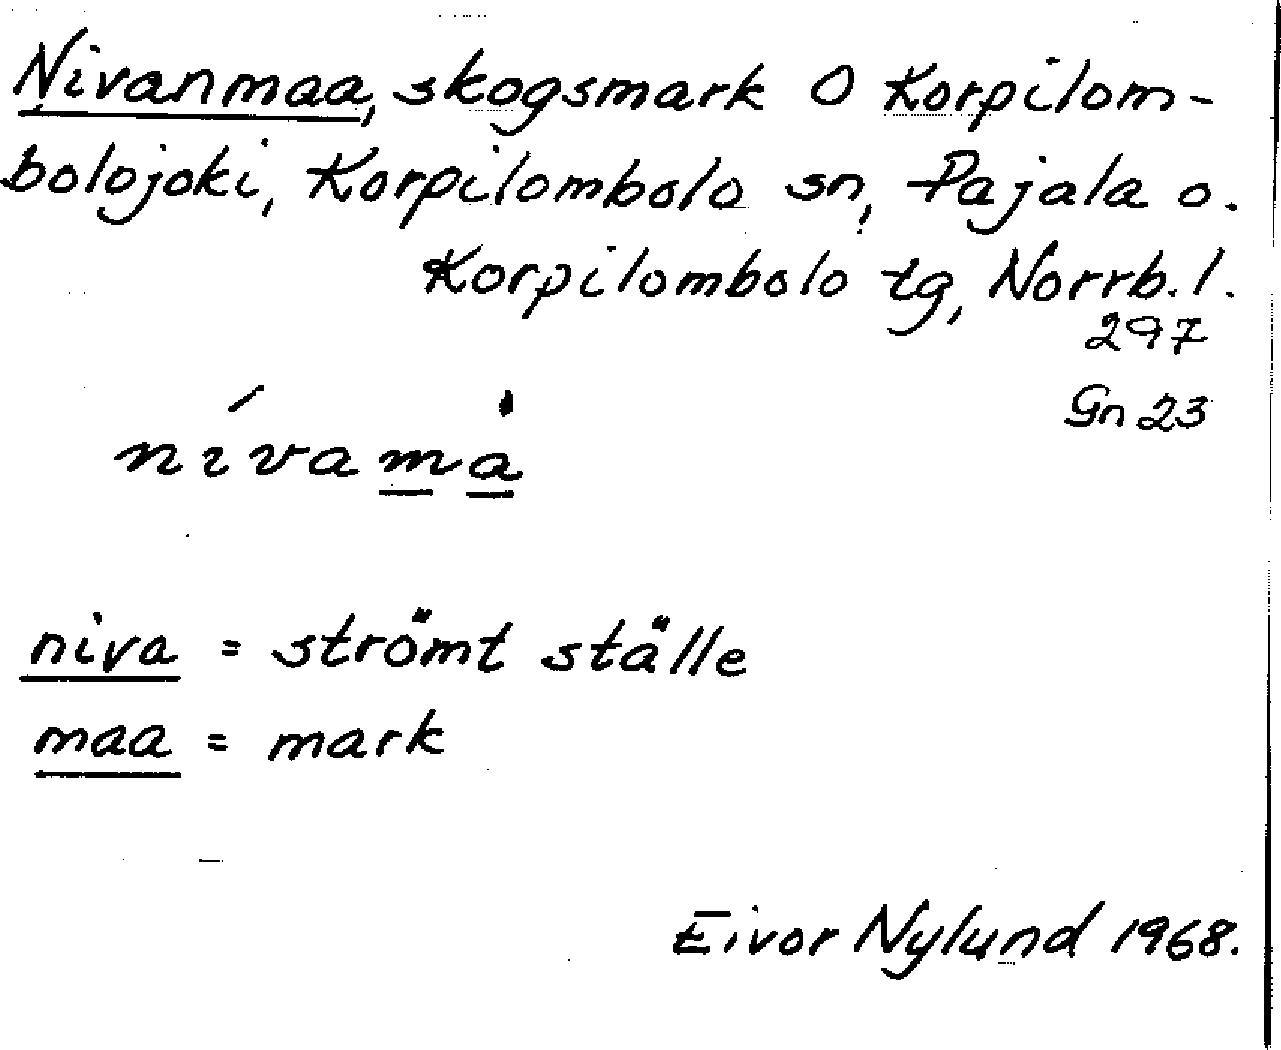 Nivanmaa, skogsmark O Korpilom-
bolojoki, Korpilombolo sn, Pajala o.
Korpilombolo tg, Norrb. l.
297
Gn 23
nívamà
niva = strömt ställe
maa = mark
Eivor Nylund 1968.